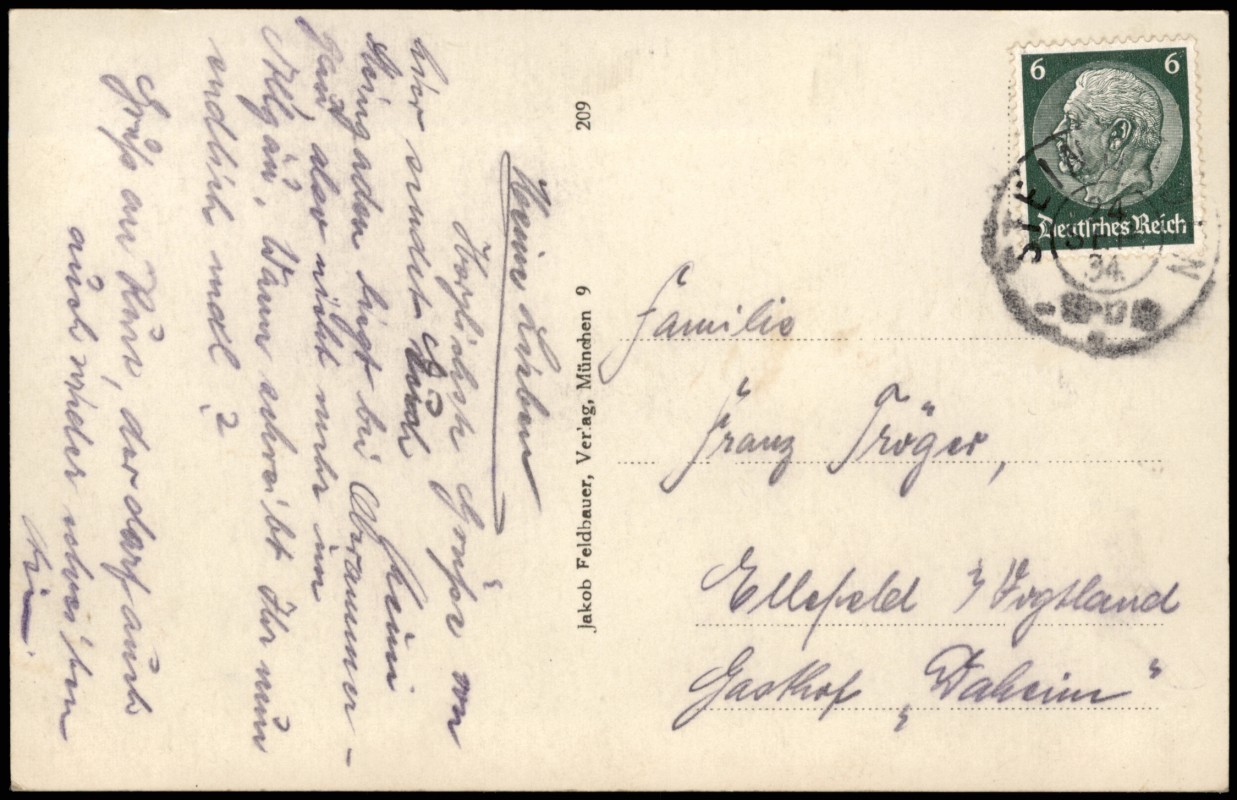 Meine Lieben
Herzlichste Grüße von
hier sendet Euch Heini
Steingaden liegt bei Oberammer-
gau, also nicht mehr im
Allgäu. Wann schreibt Ihr nun
endlich mal?
Gruß an Kurt, der darf auch
auch wieder schreiben
209
Jakob Feldbauer, Verlag, München 9
6 6
Deutsches Reich
24
34
Familie
Franz Tröger,
Ellefeld i/Vogtland
Gasthof „Daheim“